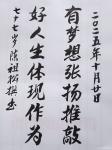 二〇二五年十月廿日
有梦想张扬推敲
好人生体现作为
七十七岁陈祖拓撰书